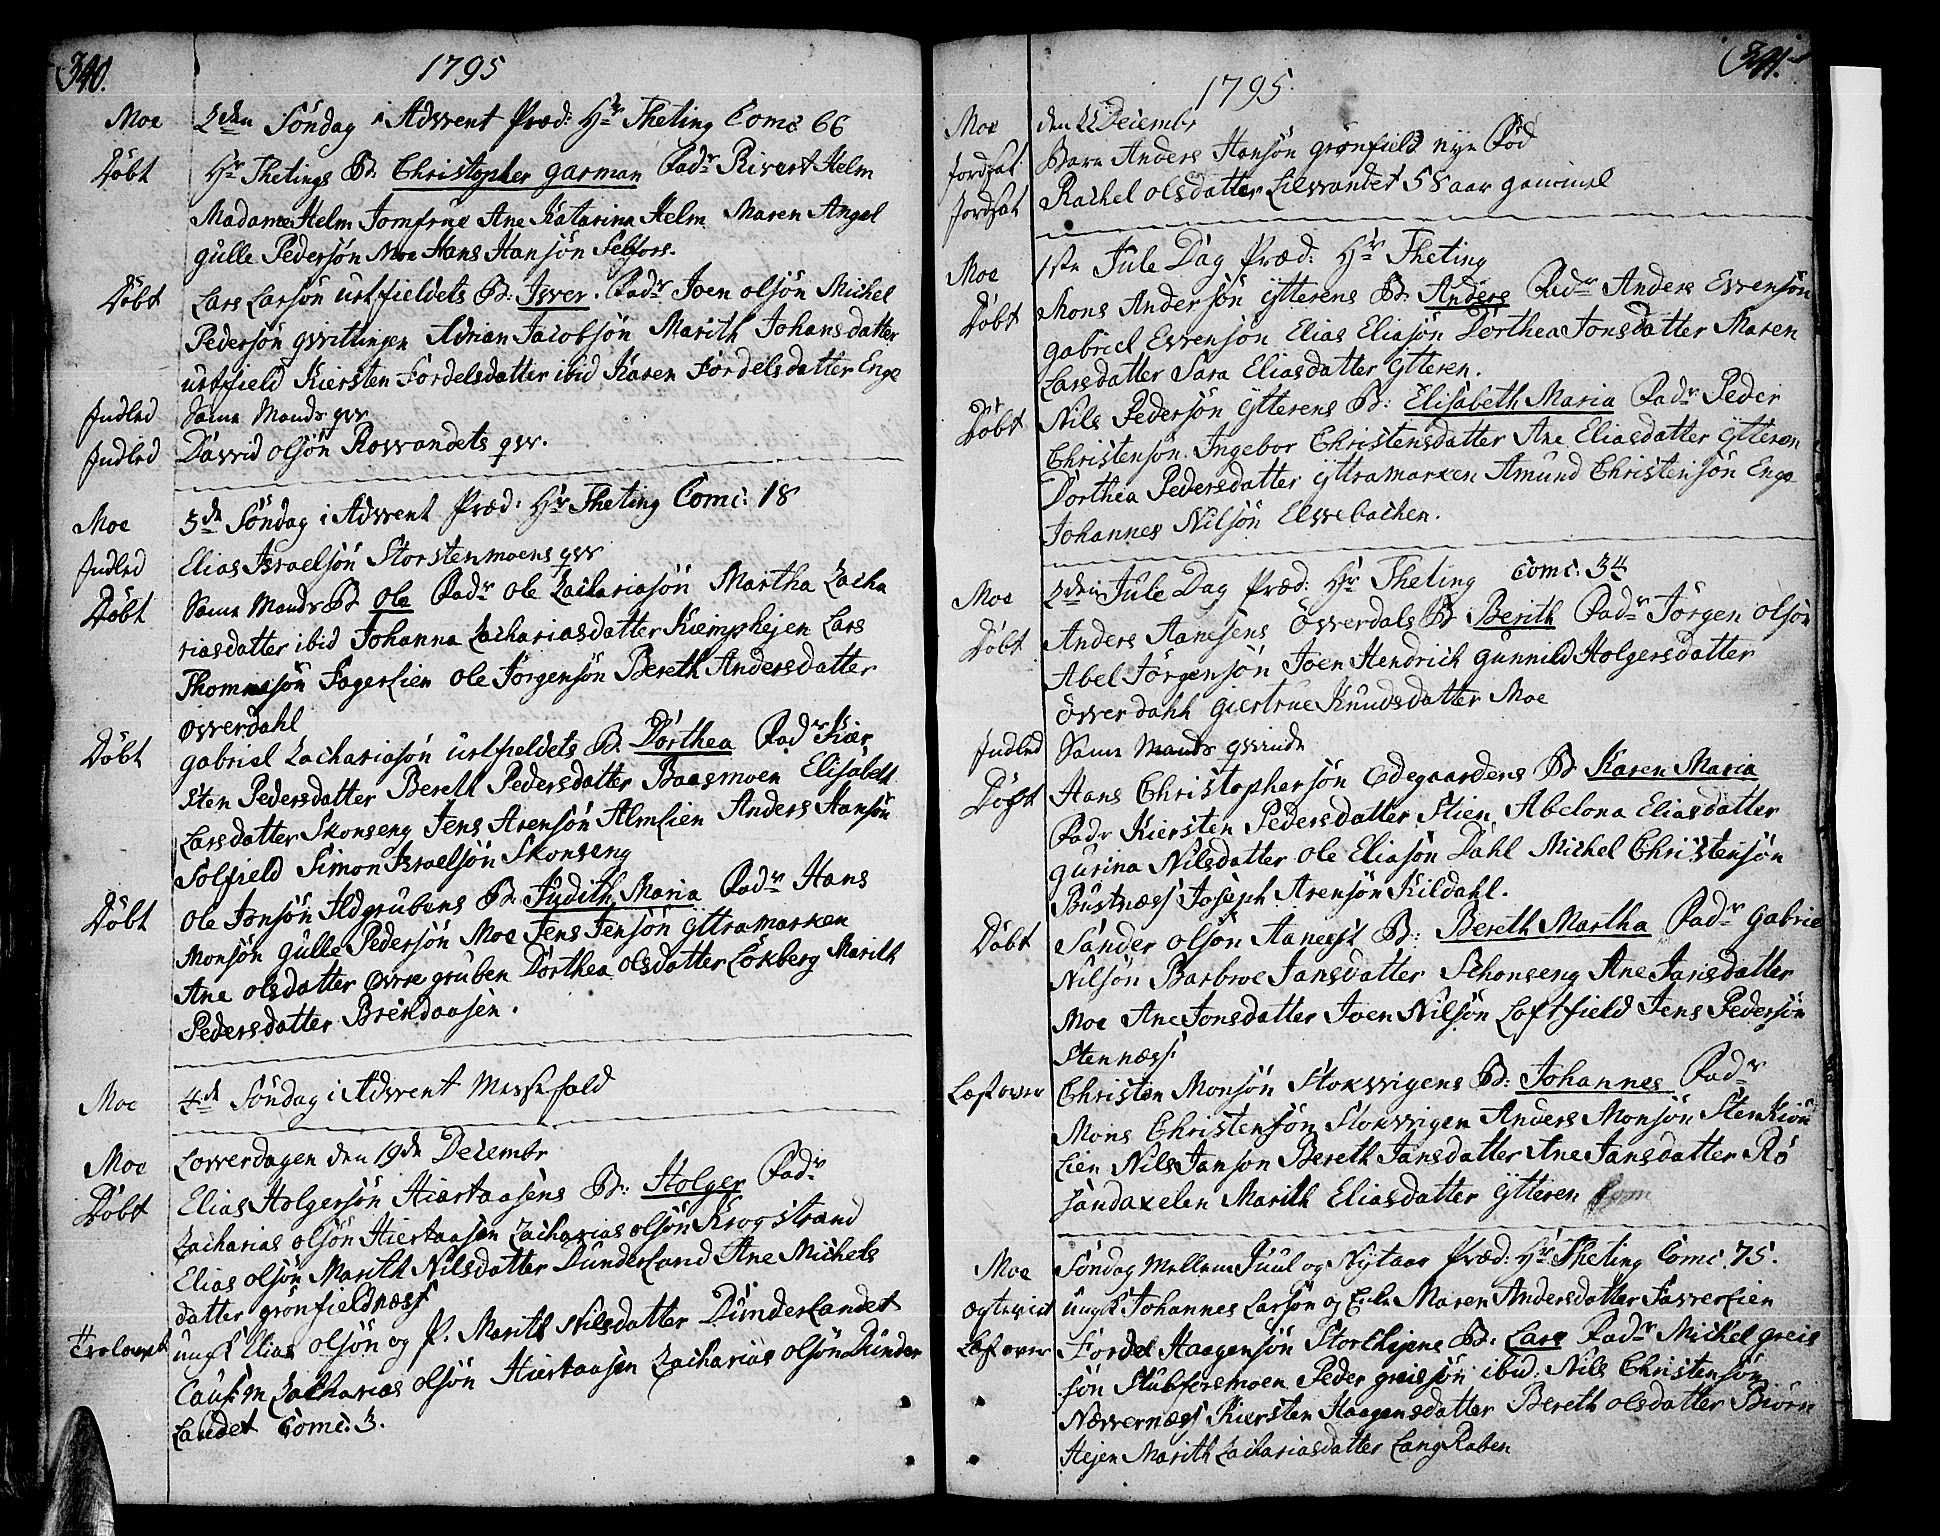 340.
1795
Moe 2den Söndag i Advent Præd: Hr Theting Comc 66
Döbt Hr Thetings B: Christopher Garman Fadr Rivert Helm
Madame Helm Jomfrue Ane Katarina Helm Maren Angel
Gulle Pedersön Moe Hans Hansön Selfors.
Döbt Lars Larsön Urtfieldets B: Isver. Fadr Joen olsön Michel
Pedersön Qvittingen Adrian Jacobsön Marith Johansdatter
urtfield Kiersten Fordelsdatter ibid Karen Fordelsdatter Enge
Indled Same Mands qvr
Indled David olsön Rovandets qvr.
Moe 3de Söndag i Advent Præd: Hr Theting Comc: 18
Indled Elias Israelsön Storstenmoens qvr
Döbt Same Mands B ole Fadr ole Zachariasön Martha Zacha
riasdatter ibid Johanna Zachariasdatter Kiemphejen Lars
Thommesön Fagerlien ole Jörgensön Bereth Andersdatter
overdahl
Döbt Gabriel Zachariasön urtfieldets B. Dorthea Fadr Kier
sten Pedersdatter Bereth Pedersdatter Baasmoen Elisabeth
Larsdatter Skonseng Jens Arensön Almlien Anders Hansön
Solfield Simon Israelsön Skonseng
Döbt Ole Jonsön Ildgrubens B: Judith Maria Fadr Hans
Monsön Gulle Pedersön Moe Jens Jensön Yttramarken
Ane olsdatter Ovregruben Dorthea olsdatter Lökberg Marith
Pedersdatter Brendaasen.
Moe 4de Söndag i Advent Messefald
Moe Loverdagen den 19de Decembr
Döbt Elias Holgersön Hiertaasens B: Holger Fadr
Zacharias olsön Hiertaasen Zacharias olsön Krogstrand
Elias olsön Marith Nilsdatter Dunderland Ane Michels
datter grönfieldnæss
Trolovet ungk Elias olsön og P. Marith Nilsdatter Dunderlandet
Caut: m Zacharias olsön Hiertaasen Zacharias olsön Dunder
Landet Comc. 3.
341.
1795.
Moe den 22 Decembr
Jordfæt Barn Anders Hansön grönfield nye Föd
Jordfæt Rachel Olsdatter Lilevandet 58 aar gammel
Moe 1ste Jule Dag Præd: Hr Theting
Döbt Mons Andersön ytterens B: Anders Fadr Anders Evensön
Gabriel Evensön Elias Eliasön Dorthea Jonsdatter Maren
Larsdatter Sara Eliasdatter Ytteren.
Döbt Nils Pedersön Ytterens B: Elisabeth Maria Fadr Peder
Christensön Ingebor Christensdatter Ane Eliasdatter Ytteren
Dorthea Pedersdatter Yttramarken Amund Christensön Enge
Johannes Nilsön Elvebacken.
Moe 2den Jule Dag Præd: Hr Theting Comc: 34
Döbt Anders Aanesens Overdals B: Berith Fadr Jörgen olsön
Abel Jörgensön Joen Hendrich Gunnild Holgersdatter
overdahl Giertrue Knudsdatter Moe
Indled Same Mands qvinde
Döbt Hans Christophersön Ödegaardens B Karen Maria
Fadr Kiersten Pedersdatter Stien Abelona Eliasdatter
Gurina Nilsdatter ole Eliasön Dahl Michel Christensön
Bustnæss Joseph Arensön Kildahl.
Döbt Sander olsön Aanæst B: Bereth Martha Fadr Gabriel
Nilsön Barbroe Jansdatter Schonseng Ane Jansdatter
Moe Ane Jonsdatter Joen Nilsön Loftfield Jens Pedersön
Stennæss
Læst over Christen Monsön Stokvigens B: Johannes Fadr
Mons Christensön Stokvigen Anders Monsön Stenkiön
lien Nils Janson Bereth Jansdatter Ane Jansdatter Rö
sandaxelen Marith Eliasdatter Ytteren
Moe Söndag Mellem Juul og Nytaar Præd: Hr Theting Comc. 75.
ægteviet ungk Johannes Larsön og Maren Andersdatter Faverlien
Læst over Fordel Haagensön Storhejens B: Lars Fadr Michel greis
sön Stubforsmoen Peder greissön ibid: Nils Christensön
Nævernæss Kiersten Haagensdatter Bereth olsdatter Biörn
Hejen Marith Zachariasdatter LangRaben